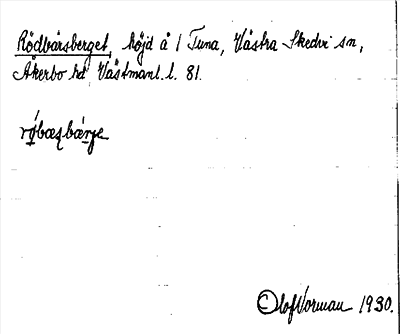 Rödbärsberget, höjd å 1 Tuna, Västra Skedvi sn,
Åkerbo hd Västmanl. l. 81.
Olof Vorman 1930.